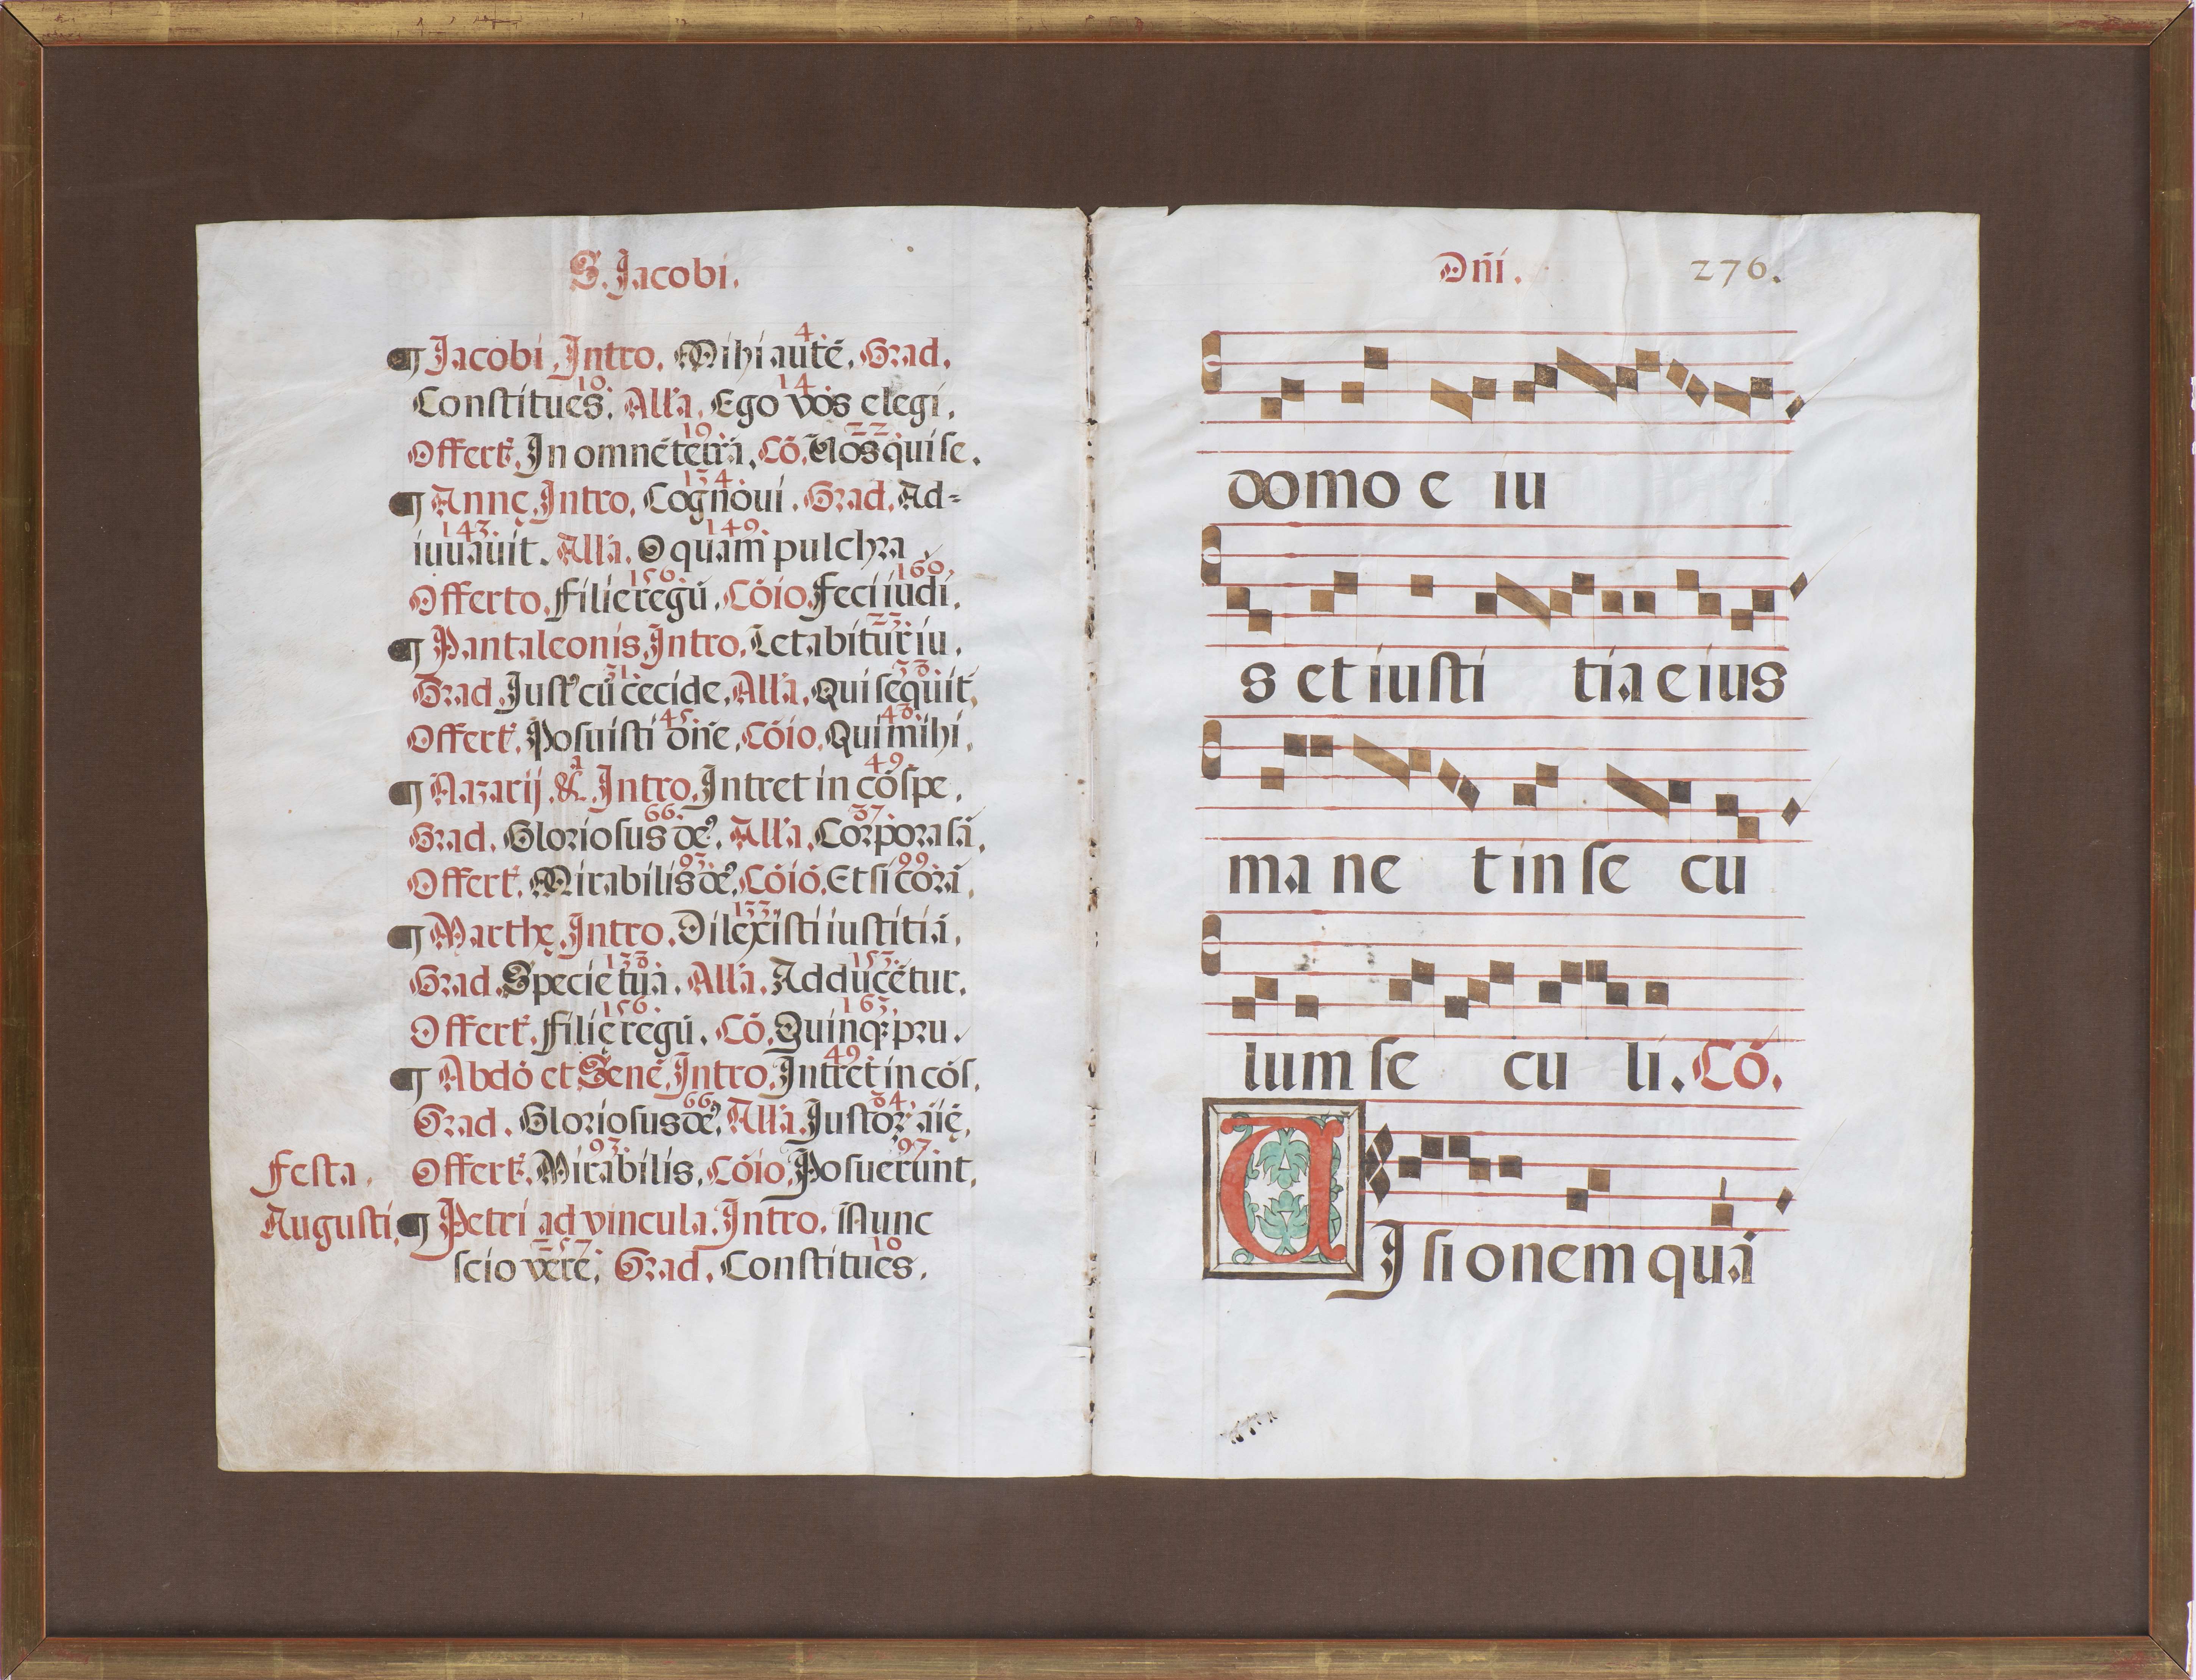 S. Jacobi.
4.
¶ Jacobi, Intro. Mihi autē. Grad.
10. 14.
Constitues. All'a. Ego vos elegi.
19. 22.
Offert. In omnē terrā. Cō. Vos qui se.
134.
¶ Annę, Intro. Cognoui. Grad. Ad-
143. 149.
iuuauit. All'a. O quam pulchra.
156. 160.
Offerto. Filie regū. Cōio. Feci iudi.
23.
¶ Pantaleonis, Intro. Letabitur iu.
31. 38.
Grad. Just' cū cecide, All'a, Qui sequit,
45. 48.
Offert. Posuisti dn̄e, Cōio. Qui mihi,
49.
¶ Nazarij, &, Intro. Intret in cōspe.
66. 37.
Grad. Gloriosus de'. All'a. Corpora sā.
93. 99.
Offert. Mirabilis de', Cōiō. Et si corā,
133.
¶ Marthę, Intro. Dilexisti iustitiā,
138. 153.
Grad. Specie tua. All'a. Adducētur.
156. 163.
Offert. Filie regū. Cō. Quinq; pru.
49.
¶ Abdō et Senē, Intro. Intret in cōs.
66. 84.
Grad. Gloriosus de'. All'a. Justor aīę.
93. 97.
Festa. Offert. Mirabilis, Cōio, Posuerunt,
Augusti, ¶ Petri ad vincula, Intro. Nunc
257. 10
scio vere. Grad. Constitues.
Dn̄i. 276.
domo e iu
s et iusti tia eius
ma ne t in se cu
lum se cu li. Cō.
VIsionem quā